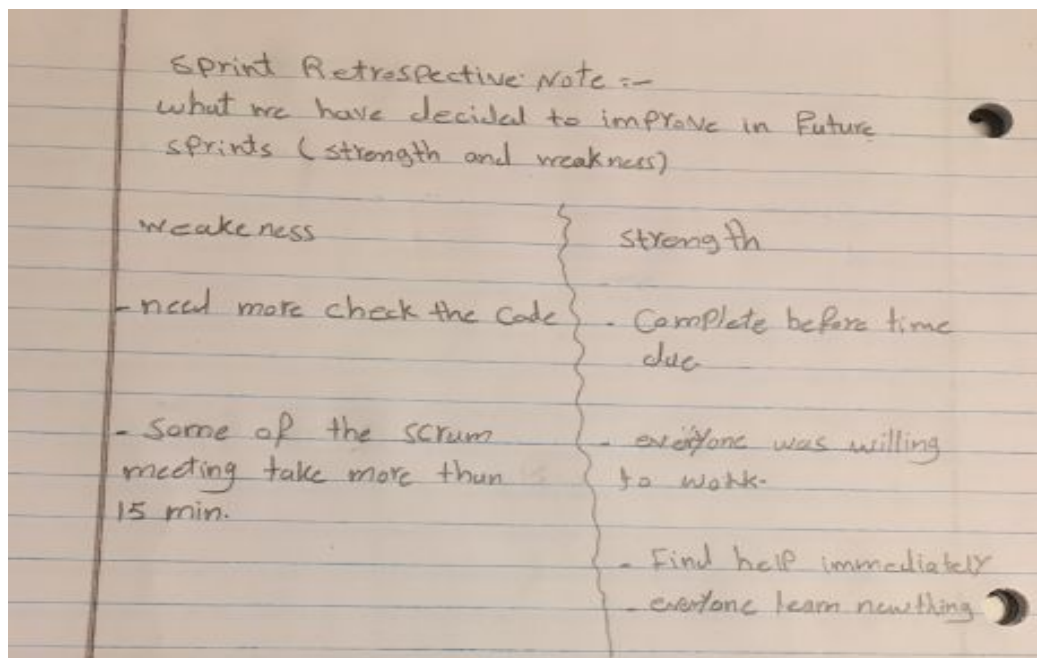 Sprint Retrospective Note :-
what we have decided to improve in Future
sprints (strength and weakness)
weakeness
- need more check the code
- Some of the scrum
meeting take more than
15 min.
strength
- Complete before time
due
- everyone was willing
to work.
- Find help immediately
- everyone learn new thing